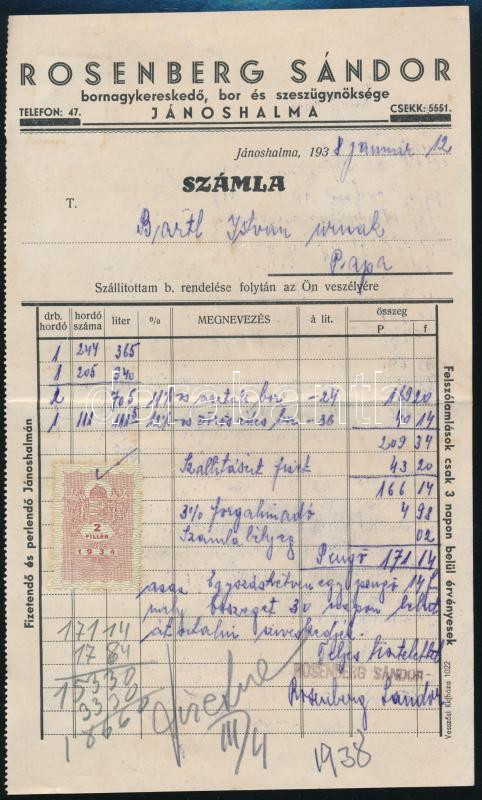 ROSENBERG SÁNDOR
bornagykereskedő, bor és szeszügynöksége
TELEFON: 47. JÁNOSHALMA CSEKK: 5551.
Jánoshalma, 1938 január 12
SZÁMLA
T. Bártl István urnak
Pápa
Szállitottam b. rendelése folytán az Ön veszélyére
drb. hordó hordó száma liter % MEGNEVEZÉS á lit. összeg P f
1 244 365
1 205 340
2 705 11% bor -24 169 20
1 111 12% bor -36 40 14
209 34
43 20
166 14
3% forgalmiadó 4 98
Számla bélyeg 02
Pengő 171 14
azaz Egyszázhetvenegy pengő 14 f.
30 napon
Teljes tisztelettel
ROSENBERG SÁNDOR
Rosenberg Sándor
2
FILLÉR
1934
171 14
17 84
153 30
93 30
III/4
1938
Fizetendő és perlendő Jánoshalmán
Felszólamlások csak 3 napon belül érvényesek
darabanth